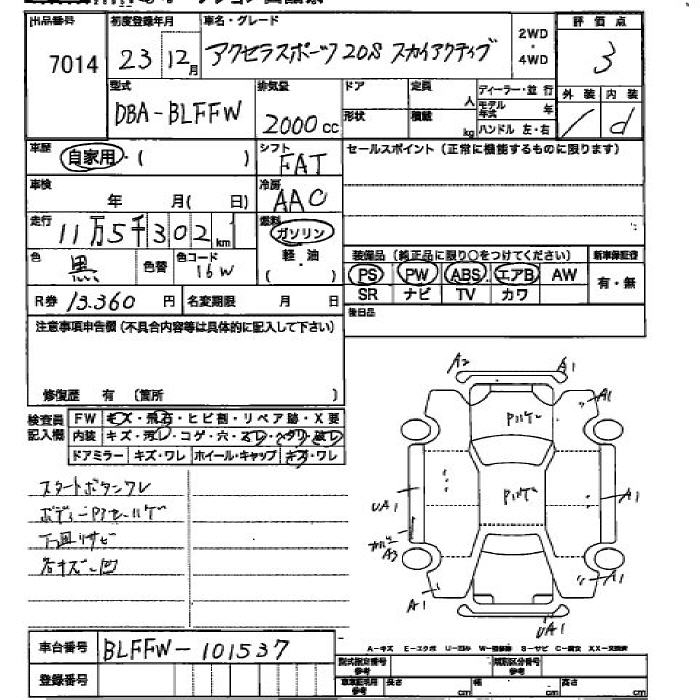 出品番号 初度登録年月 車名・グレード 2WD・4WD 評価点
7014 23 12月 アクセラスポーツ20S スカイアクティブ 3
型式 排気量 ドア 定員 人 ディーラー・並行 外装 内装
DBA-BLFFW 2000cc 形状 積載 kg モデル年式 年 ハンドル 左・右 / d
車歴 自家用・( ) シフト FAT セールスポイント(正常に機能するものに限ります)
車検 年 月( 日) 冷房 AAC
走行 11万5千302km 燃料 ガソリン
色 黒 色替 色コード 16W 軽・油 ( )
装備品(純正品に限り○をつけてください) 新車保証書
PS PW ABS エアB AW 有・無
SR ナビ TV カワ
R券 13.360 円 名変期限 月 日 後日品
注意事項申告欄(不具合内容等は具体的に記入して下さい)
修復歴 有 (箇所 )
検査員記入欄 FW キズ・飛石・ヒビ割・リペア跡・X要
内装 キズ・汚レ・コゲ・穴・スレ・ヘタリ・破レ
ドアミラー キズ・ワレ ホイール・キャップ キズ・ワレ
スタートボタンワレ
下回リサビ
各キズ凹
A2 A1
A1
ハゲ
UA1 ハゲ A1
A3
A1 A1
UA1
車台番号 BLFFW-101537
登録番号
A-キズ E-エクボ U-凹み W-補修跡 S-サビ C-腐食 XX-交換済
型式指定番号 参考 類別区分番号 参考
車庫証明用 参考 長さ cm 幅 cm 高さ cm